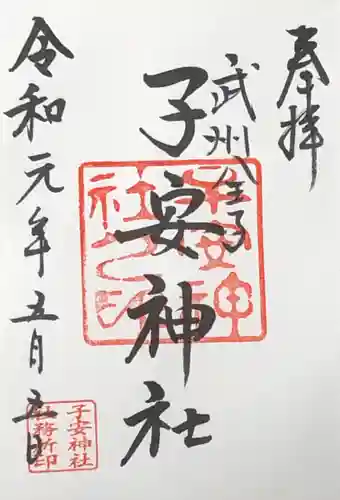 奉拝
武州八王子
子安神社
令和元年五月五日
子安神社之印
子安神社
社務所印